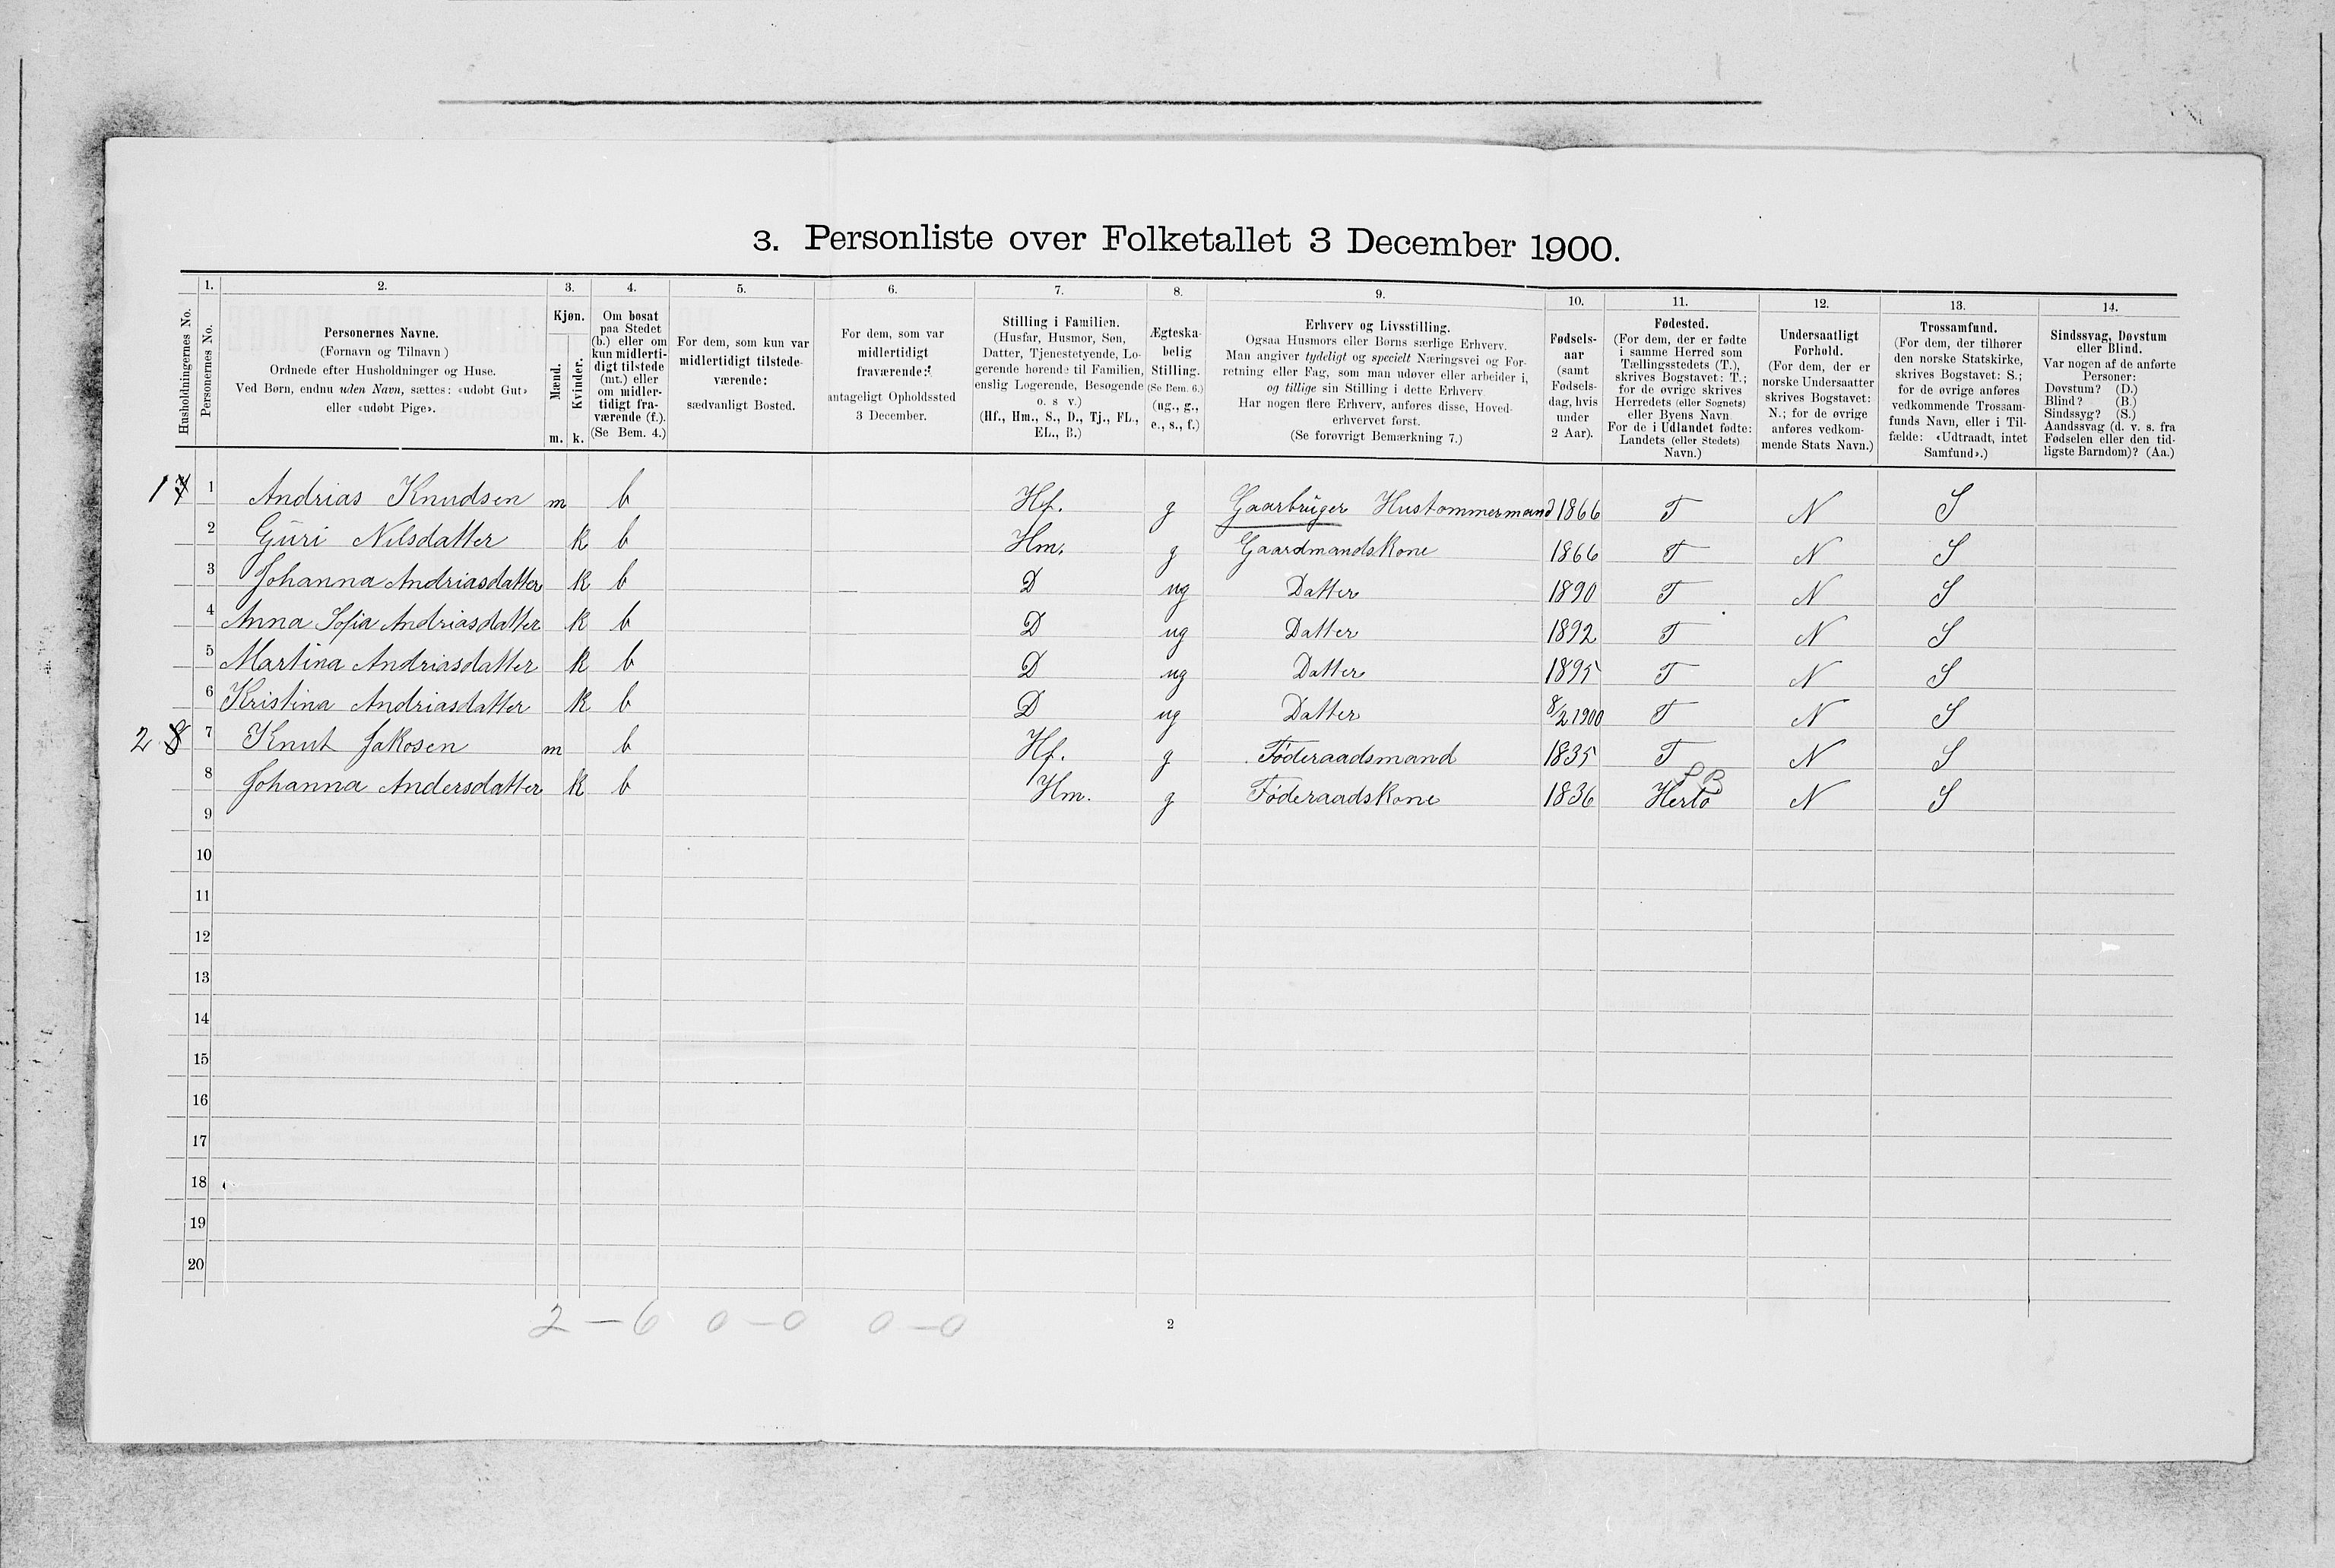 3. Personliste over Folketallet 3 December 1900.
Husholdningernes No.
1. Personernes No.
2. Personernes Navne.
(Fornavn og Tilnavn)
Ordnede efter Husholdninger og Huse.
Ved Børn, endnu uden Navn, sættes: «udøbt Gut»
eller «udøbt Pige».
3. Kjøn.
Mænd. m.
Kvinder. k.
4. Om bosat
paa Stedet
(b.) eller om
kun midlerti-
digt tilstede
(mt.) eller
om midler-
tidigt fra-
værende (f.).
(Se Bem. 4.)
5. For dem, som kun var
midlertidigt tilstede-
værende:
sædvanligt Bosted.
6. For dem, som var
midlertidigt
fraværende:
antageligt Opholdssted
3 December.
7. Stilling i Familien.
(Husfar, Husmor, Søn,
Datter, Tjenestetyende, Lo-
gerende hørende til Familien,
enslig Logerende, Besøgende
o. s v.)
(Hf., Hm., S., D., Tj., FL.,
EL., B.)
8. Ægteska-
belig
Stilling.
(Se Bem. 6.)
(ug., g.,
e., s., f.)
9. Erhverv og Livsstilling.
Ogsaa Husmors eller Børns særlige Erhverv.
Man angiver tydeligt og specielt Næringsvei og For-
retning eller Fag, som man udøver eller arbeider i,
og tillige sin Stilling i dette Erhverv
Har nogen flere Erhverv, anføres disse, Hoved-
erhvervet først.
(Se forøvrigt Bemærkning 7.)
10. Fødsels-
aar
(samt
Fødsels-
dag, hvis
under
2 Aar).
11. Fødested.
(For dem, der er fødte
i samme Herred som
Tællingsstedets (T.),
skrives Bogstavet: T.;
for de øvrige skrives
Herredets (eller Sognets)
eller Byens Navn
For de i Udlandet fødte:
Landets (eller Stedets)
Navn.)
12. Undersaatligt
Forhold.
(For dem, der er
norske Undersaatter
skrives Bogstavet:
N.; for de øvrige
anføres vedkom-
mende Stats Navn.)
13. Trossamfund.
(For dem, der tilhører
den norske Statskirke,
skrives Bogstavet: S.;
for de øvrige anføres
vedkommende Trossam-
funds Navn, eller i Til-
fælde: «Udtraadt, intet
Samfund».)
14. Sindssvag, Døvstum
eller Blind.
Var nogen af de anførte
Personer:
Døvstum? (D.)
Blind? (B.)
Sindssyg? (S.)
Aandssvag (d. v. s. fra
Fødselen eller den tid-
ligste Barndom)? (Aa.)
1 7 1 Andrias Knudsen m b Hf. g Gaarbruger Hustømmermand 1866 T N S
2 Guri Nilsdatter k b Hm. g Gaardmandskone 1866 T N S
3 Johanna Andriasdatter k b D ug Datter 1890 T N S
4 Anna Sofia Andriasdatter k b D ug Datter 1892 T N S
5 Martina Andriasdatter k b D ug Datter 1895 T N S
6 Kristina Andriasdatter k b D ug Datter 8/2 1900 T N S
2 8 7 Knut Jakosen m b Hf. g Føderaadsmand 1835 T N S
8 Johanna Andersdatter k b Hm. g Føderaadskone 1836 Herlø N S
9
10
11
12
13
14
15
16
17
18
19
20
2 — 6 0 — 0 0 — 0
2